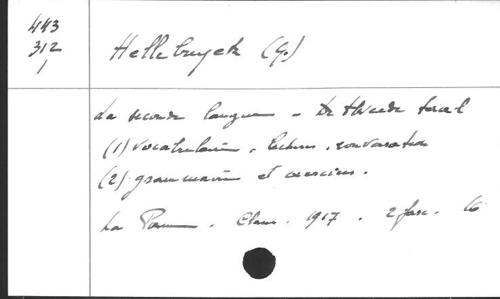 443
312
1
Hellebuyck (G.)
La seconde langue - De tweede taal
(1) vocabulaire, lecture, conversation
(2) grammaire et exercices.
La Panne. Clam. 1917. 2 fasc. 16